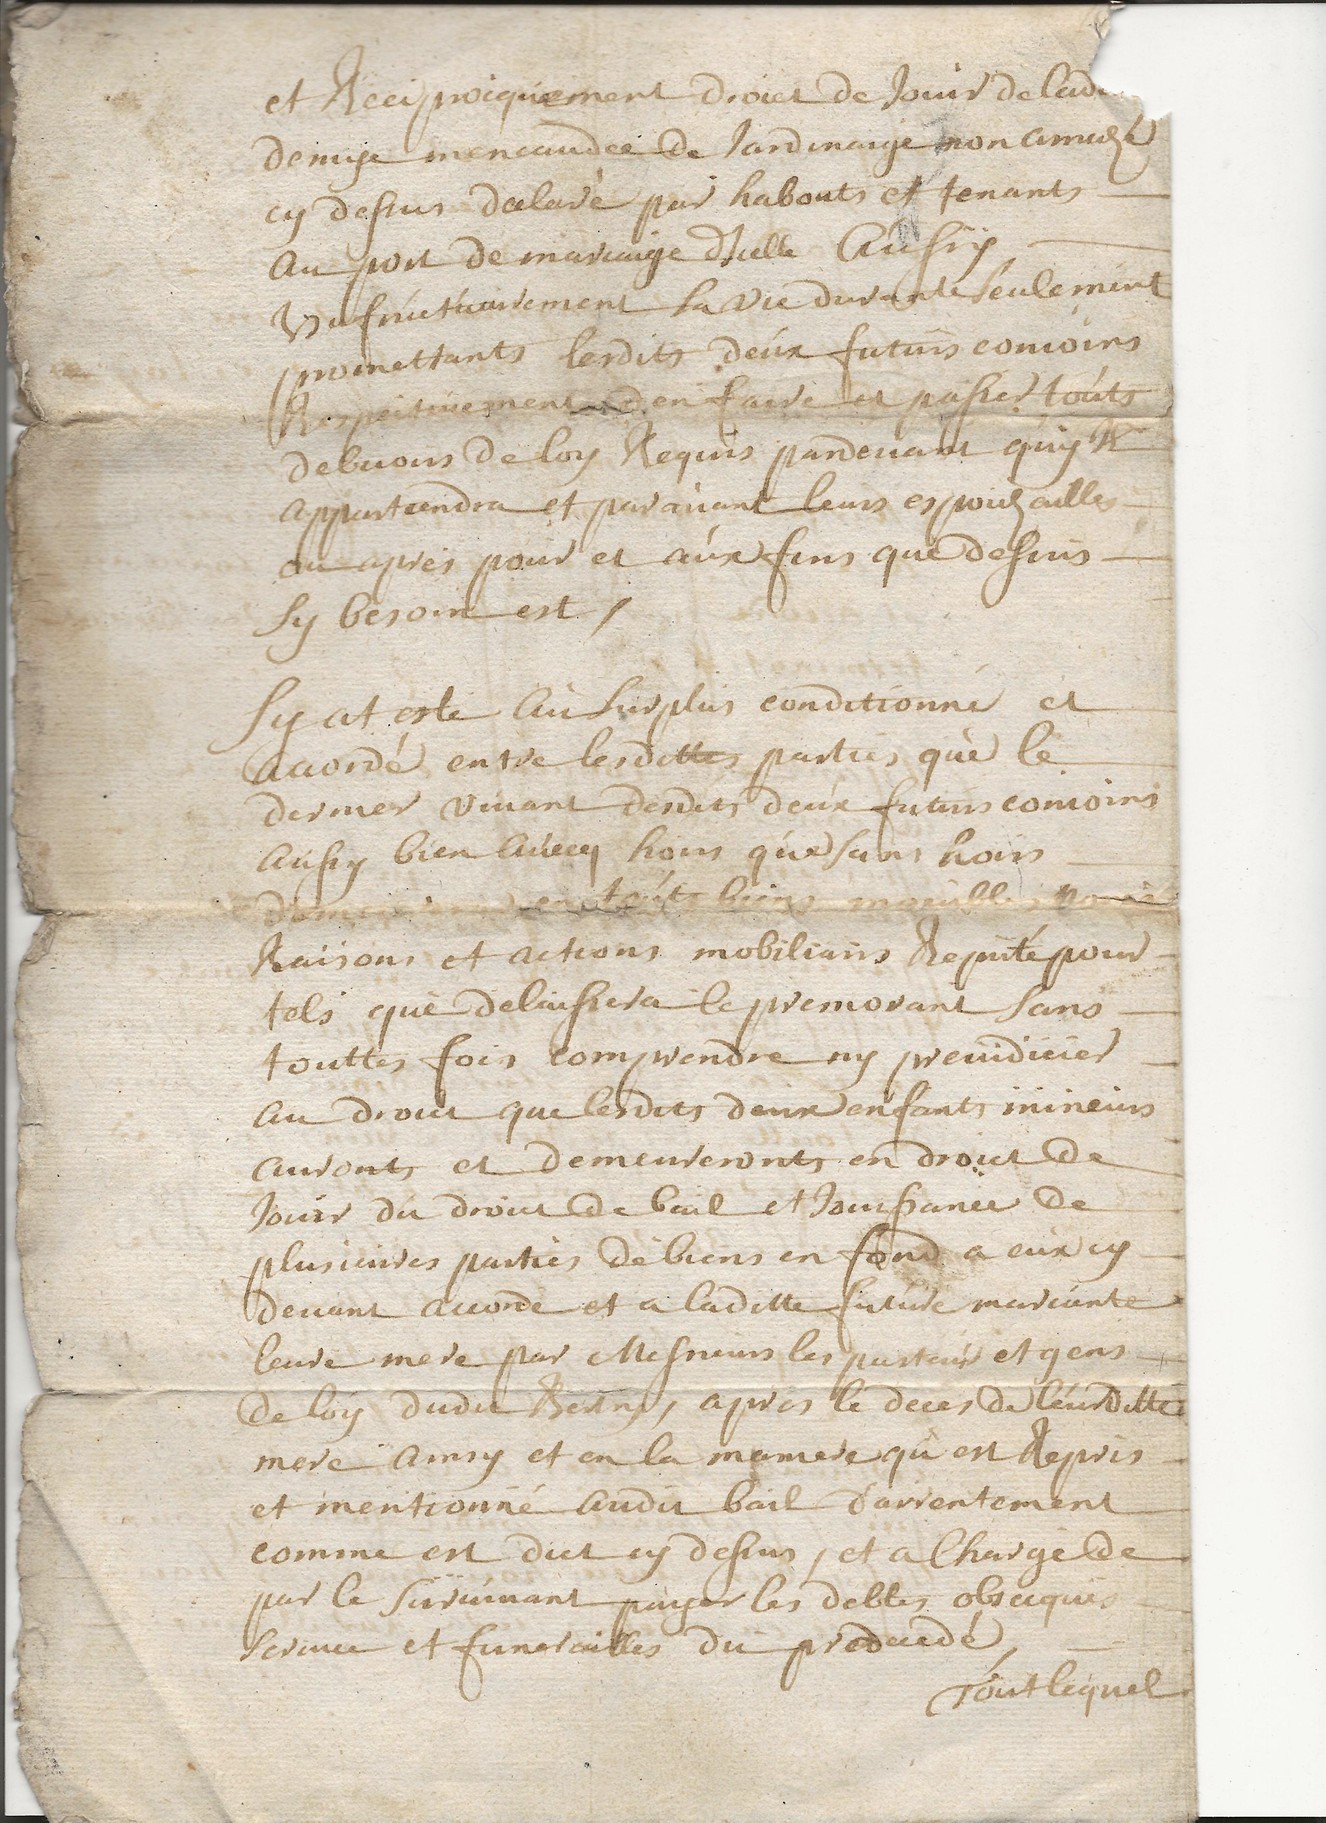 et Reciproiquement droict de Jouir de lad
demye mencaudee de Jardinaige non amazé
cy dessus declaré par habouts et tenants
au port de mariaige d'icelle Aussÿ
Vsufructuairement sa vie durante seulement
promettants lesdits deux futurs conioins
Respectivement d'en faire et passer touts
debuoirs de loy Requis pardeuant quy Il
appartiendra et parauant leurs espouzailles
ou apres pour et aux fins que dessus
sy besoin est /
Sy at esté au surplus conditionné et
accordé entre lesdittes parties que le
dernier viuant desdits deux futurs conioins
aussy bien auecq hoirs que sans hoirs
en touts biens meubles
Raisons et actions mobiliairs Reputé pour
tels que delaissera le premorant sans
touttes fois comprendre ny preiudicier
au droict que lesdits deux enfants mineurs
auronts et demeureronts en droict de
Jouir du droict de bail et Jouissance de
plusieures parties de biens en fond a eux cy
deuant accordé et a laditte future mariante
leure mere par Messieurs les pasteur et gens
de loy dudit , apres le deces de leurditte
mere ainsy et en la maniere qu'est Repris
et mentionné audit bail d'arrentement
comme est dict cy dessus, et a Charge de
par le suruiuant paÿer les debtes obseques
seruice et funerailles du predecedé,
Tout lequel